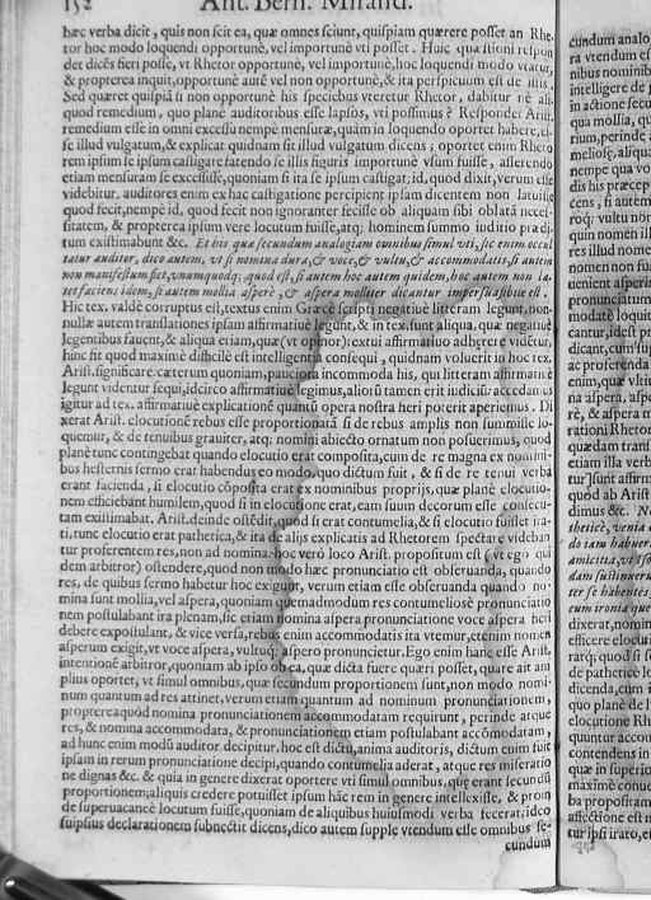 152 Ant. Bern. Mirand.
hæc verba dicit, quis non scit ea, quæ omnes sciunt, quispiam quærere posset an Rhe-
tor hoc modo loquendi opportunè, vel importunè vti posset. Huic quæstioni respon
det dicēs fieri posse, vt Rhetor opportunè, vel importunè, hoc loquendi modo vtatur,
& propterea inquit, opportunè autē vel non opportunè, & ita perspicuum est de illis.
Sed quæret quispiā si non opportunè his speciebus vteretur Rhetor, dabitur nè ali-
quod remedium, quo planè auditoribus esse lapsos, vti possimus? Respondet Arist.
remedium esse in omni excessu nempè mensuræ, quàm in loquendo oportet habere,
se illud vulgatum, & explicat quidnam sit illud vulgatum dicens; oportet enim Rheto
rem ipsum se ipsum castigare fatendo se illis figuris importunè vsum fuisse, asserendo
etiam mensuram se excessisse, quoniam si ita se ipsum castigat; id, quod dixit, verum esse
videbitur. auditores enim ex hac castigatione percipient ipsam dicentem non latuisse
quod fecit, nempè id, quod fecit non ignoranter fecisse ob aliquam sibi oblatā neces-
sitatem, & propterea ipsum vere locutum fuisse, atq; hominem summo iuditio prædi-
tum existimabunt &c. Et his quæ secundum analogiam omnibus simul vti, sic enim occul
tatur auditor, dico autem, vt si nomina dura, & voce, & vultu, & accommodatis, si autem
non manifestum fiet, vnumquodq; quod est, si autem hoc autem quidem, hoc autem non la-
tet faciens idem, si autem mollia asperè, & aspera molliter dicantur impersuasibile est.
Hic tex. valdè corruptus est, textus enim Græcè scripti negatiuè litteram legunt, non-
nullæ autem translationes ipsam affirmatiuè legunt, & in tex. sunt aliqua, quæ negatiuè
legentibus fauent, & aliqua etiam, quæ (vt opinor) textui affirmatiuo adherere videtur,
hinc fit quod maximè difficilè est intelligentiā consequi, quidnam voluerit in hoc tex.
Arist. significare. cæterum quoniam, pauciora incommoda his, qui litteram affirmatiuè
legunt videntur sequi, idcirco affirmatiuè legimus, aliorū tamen erit iudiciū: accedamus
igitur ad tex. affirmatiuè explicationē quantū opera nostra fieri poterit aperiemus. Di
xerat Arist. elocutionē rebus esse proportionatā si de rebus amplis non summisse lo-
quemur, & de tenuibus grauiter, atq; nomini abiecto ornatum non posuerimus, quod
planè tunc contingebat quando elocutio erat composita, cum de re magna ex nomini-
bus hesternis sermo erat habendus eo modo, quo dictum fuit, & si de re tenui verba
erant facienda, si elocutio cōposita erat ex nominibus proprijs, quæ planè elocutio-
nem efficiebant humilem, quod si in elocutione erat, eam suum decorum esse consecu-
tam existimabat. Arist. deinde ostēdit, quod si erat contumelia, & si elocutio fuisset ira-
ti, tunc elocutio erat pathetica, & ita de alijs explicatis ad Rhetorem spectare videban
tur proferentem res, non ad nomina. hoc verò loco Arist. propositum est (vt ego qui
dem arbitror) ostendere, quod non modo hæc pronunciatio est obseruanda, quando
res, de quibus sermo habetur hoc exigunt, verum etiam esse obseruanda quando no-
mina sunt mollia, vel aspera, quoniam quemadmodum res contumeliosè pronunciatio
nem postulabant ita plenam, sic etiam nomina aspera pronunciatione voce aspera fieri
debere expostulant, & vice versa, rebus enim accommodatis ita vtemur, etenim nomen
asperum exigit, vt voce aspera, vultuq; aspero pronuncietur. Ego enim hanc esse Arist.
intentionē arbitror, quoniam ab ipso ob ea, quæ dicta fuere quæri posset, quare ait am
plius oportet, vt simul omnibus, quæ secundum proportionem sunt, non modo nomi-
num quantum ad res attinet, verum etiam quantum ad nominum pronunciationem,
proptereaquòd nomina pronunciationem accommodatam requirunt, perinde atque
res, & nomina accommodata, & pronunciationem etiam postulabant accōmodatam,
ad hunc enim modū auditor decipitur, hoc est dictū, anima auditoris, dictum enim fuit
ipsam in rerum pronunciatione decipi, quando contumelia aderat, atque res miseratio
ne dignas &c. & quia in genere dixerat oportere vti simul omnibus, quę erant secundū
proportionem; aliquis credere potuisset ipsum hāc rem in genere intellexisse, & proin
de superuacanee locutum fuisse, quoniam de aliquibus huiusmodi verba fecerat, ideo
suipsius declarationem subnectit dicens, dico autem supplę vtendum esse omnibus se-
cundum
cundum analo
ra vtendum es
nibus nominib
intelligere de
in actione secu
qua mollia, qu
rium, perinde
meliosę, aliqua
nempe qua vo
dis his præcep
cens, si autem
roq; vultu non
quin nomen ill
res illud nome
nomen non fu
uenient asperis
pronunciatum
modatè loquit
cantur, idest pr
dicant, cum sup
ac proferenda
enim, quæ vlt
na aspera, aspe
rè, & aspera m
rationi Rhetor
quædam transf
etiam illa verb
tur] sunt assum
quòd ab Arist
dimus &c. No
theticè, venia
do tam habuer
amicitia, vt iso
dam sustinueru
ter se habentes
cum ironia que
dixerat, nomin
efficere elocuti
rarq; quod si s
de pathetice lo
dicenda, cum i
quo planè de l
elocutione Rh
quuntur accom
contendens in
quæ in superio
maximè conue
ba propositam
affectione est
tur ipsi irato, et